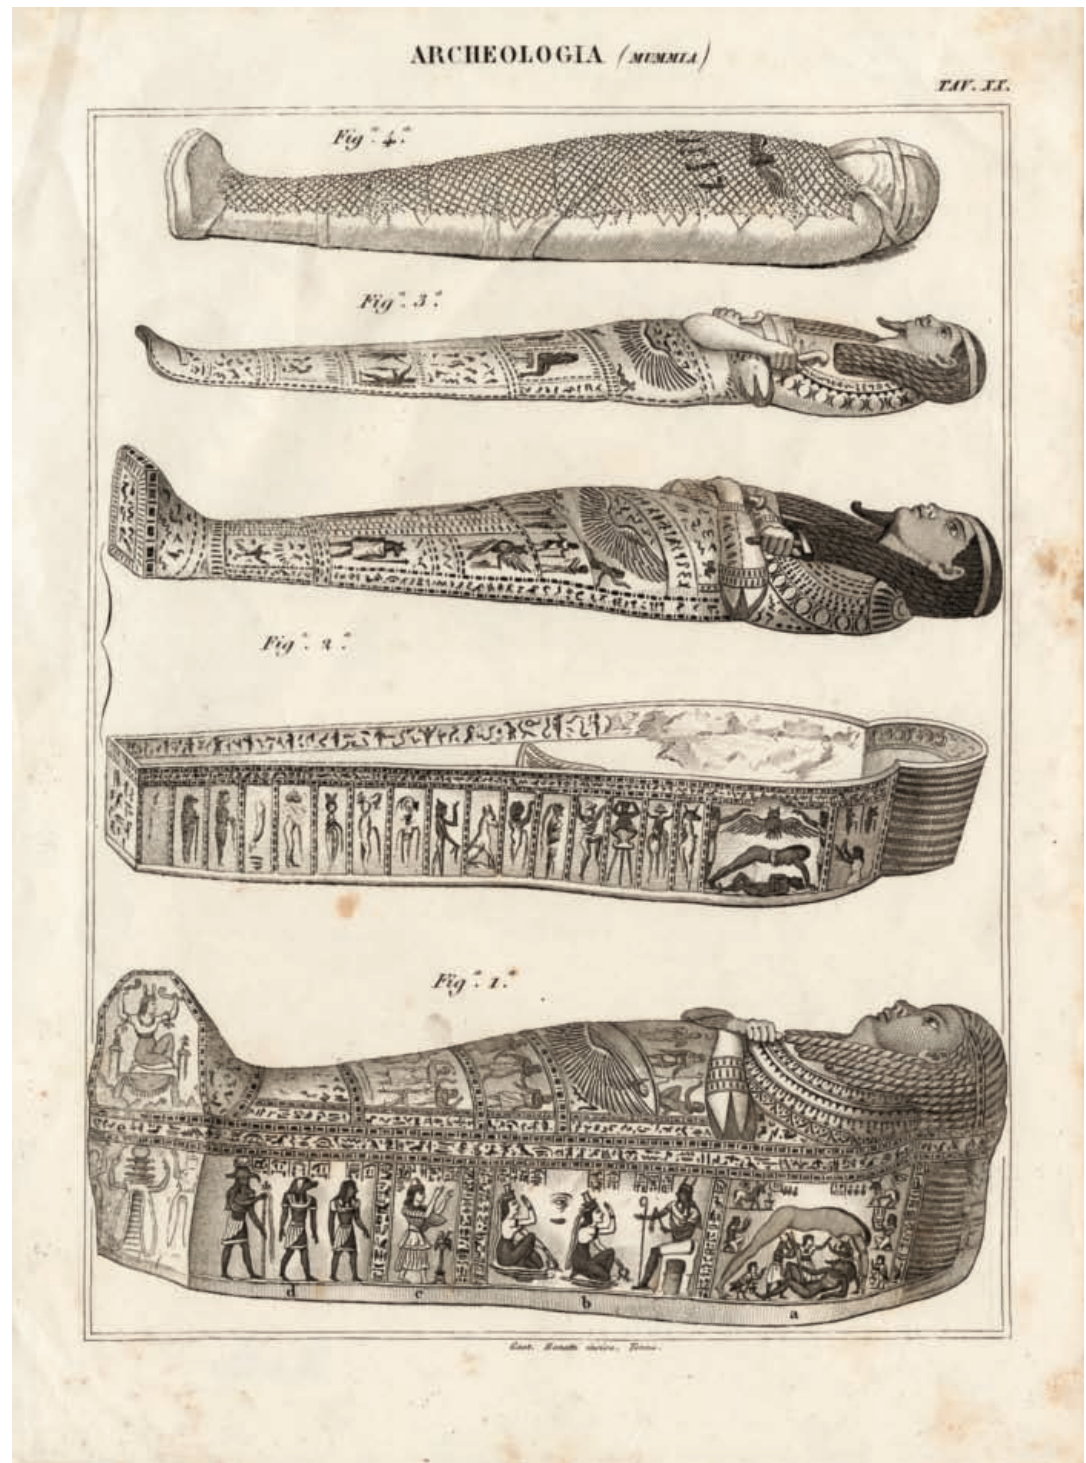 ARCHEOLOGIA (MUMMIA)
TAV. XX.
Fig.ª 4.ª
Fig.ª 3.ª
Fig.ª 2.ª
Fig.ª 1.ª
d c b a
incise, Torino.